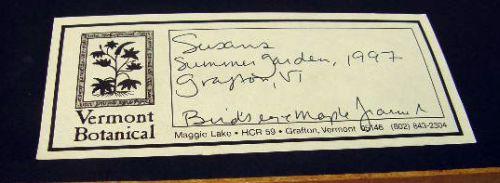 Vermont
Botanical
Susans
Summer garden, 1997
Grafton, VT
Birdseye Maple frame
Maggie Lake • HCR 59 • Grafton, Vermont 05146 (802) 843-2304